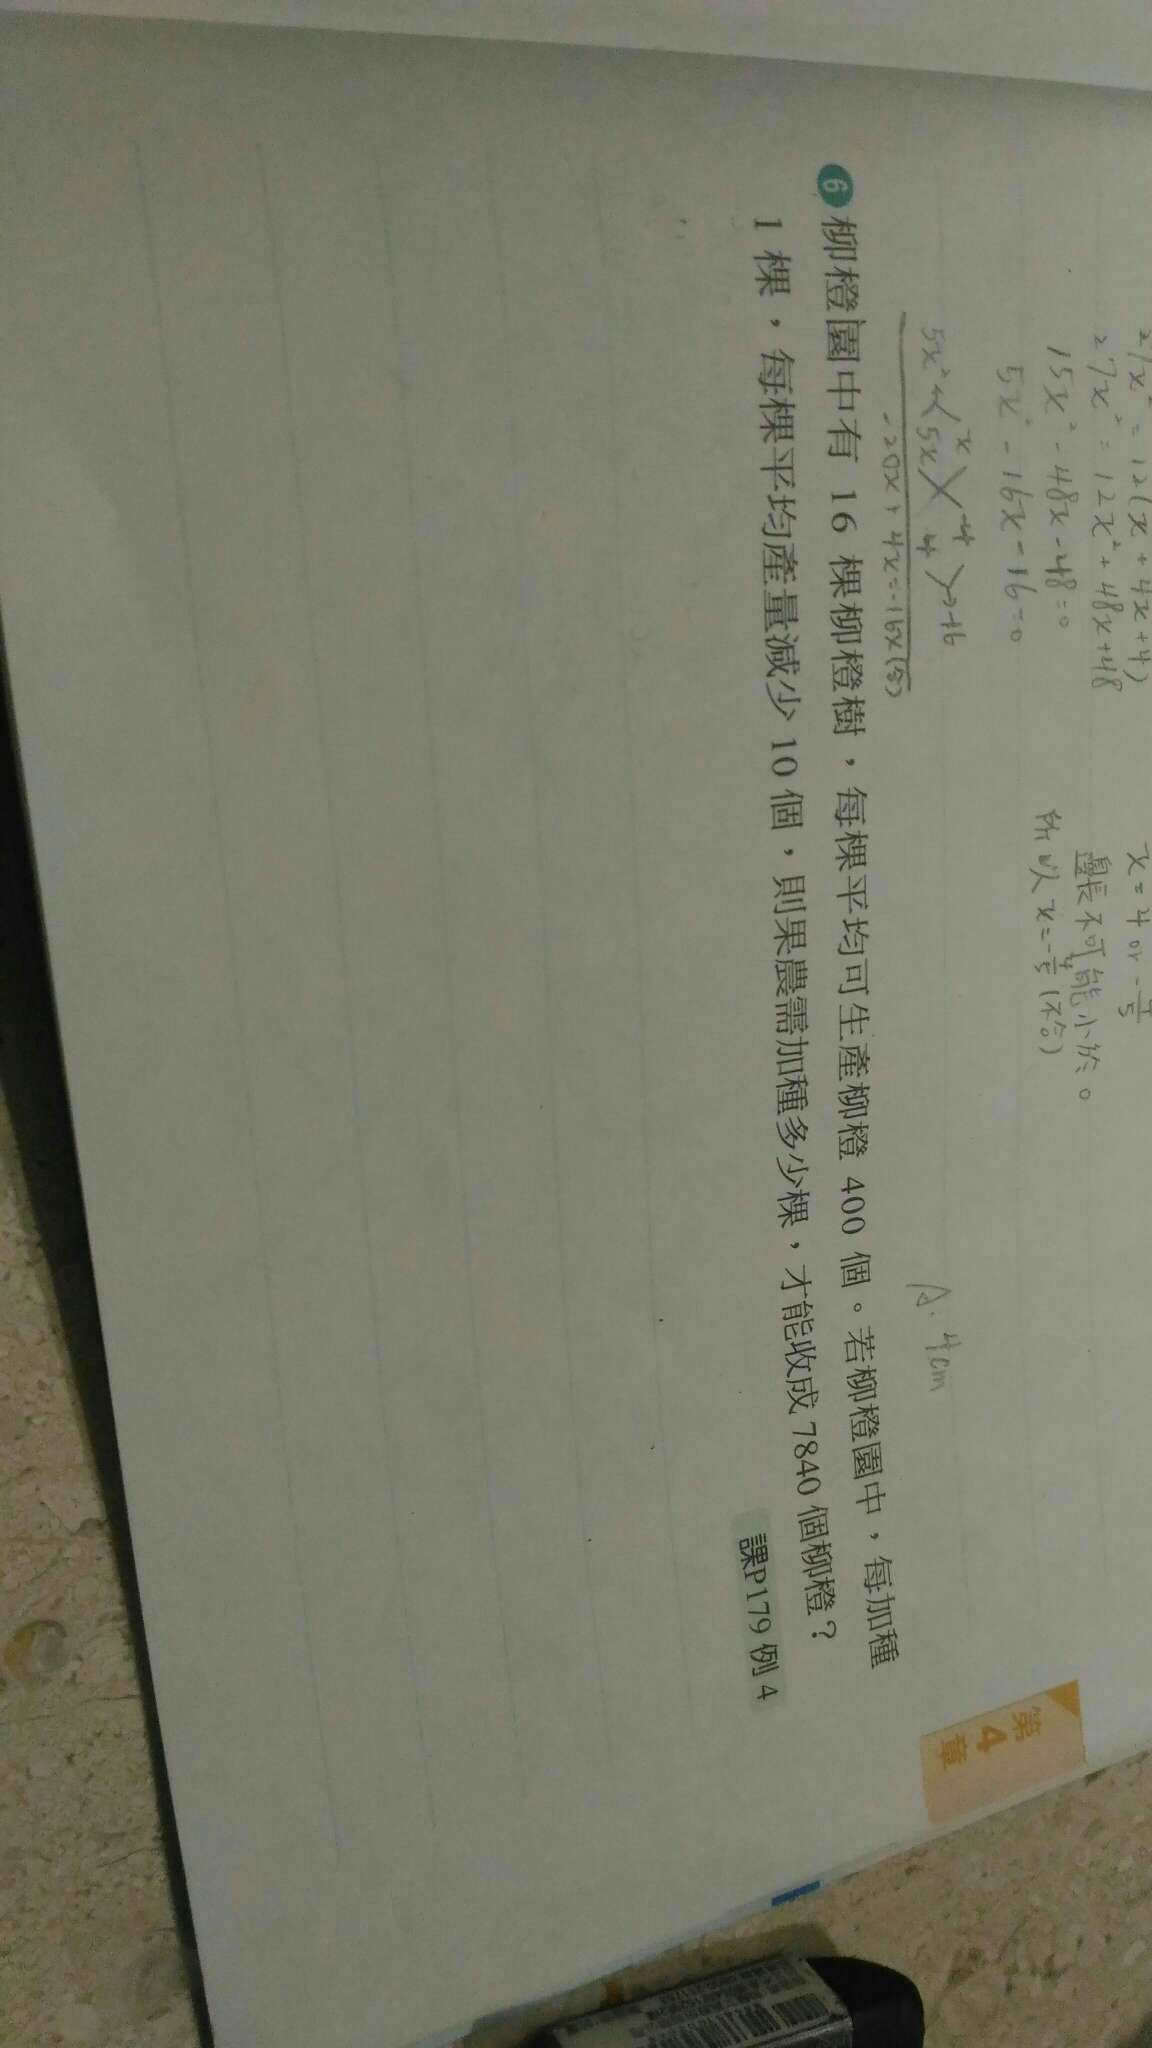 27x² = 12(x + 4x + 4)
27x² = 12x² + 48x + 48
15x² - 48x - 48 = 0
5x² - 16x - 16 = 0
x = 4 or -
邊長不可能小於0
所以 x = -4/5 (不合)
A. 4cm
第4章
6 柳橙園中有 16 棵柳橙樹，每棵平均可生產柳橙 400 個。若柳橙園中，每加種
1 棵，每棵平均產量減少 10 個，則果農需加種多少棵，才能收成 7840 個柳橙？
課P179 例 4